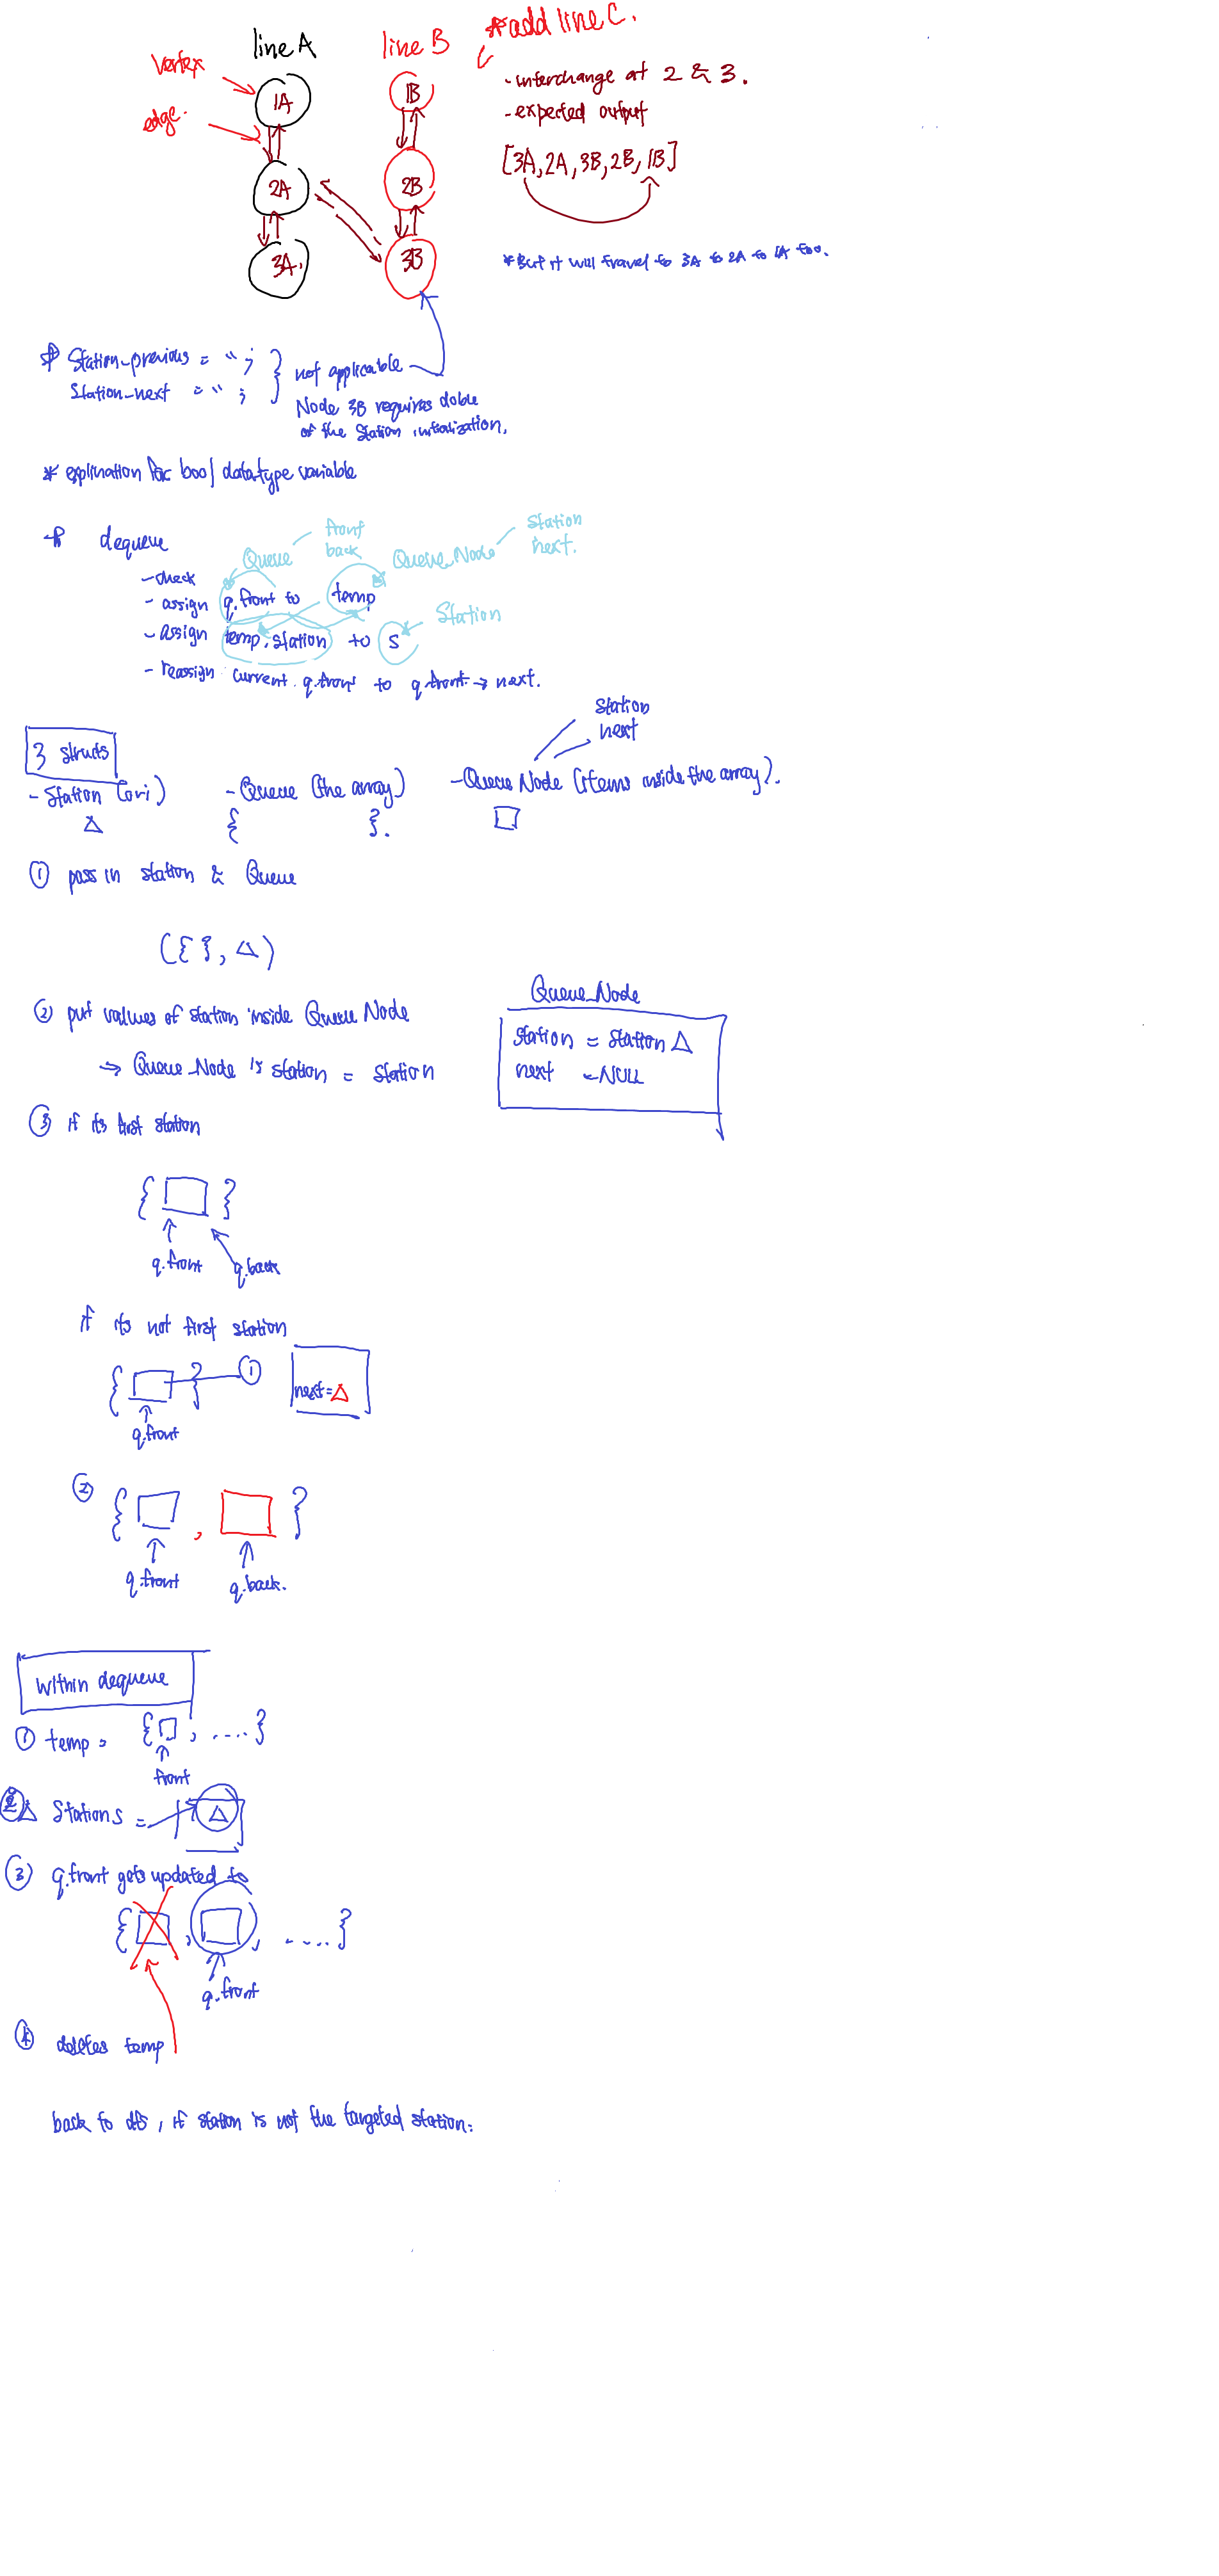 line A
line B
*add line C.
vertex
edge.
1A
2A
3A.
1B
2B
3B
- interchange at 2 & 3.
- expected output
[3A, 2A, 3B, 2B, 1B]
*But it will travel to 3A to 2A to 1A too.
* Station_previous = " ;
Station_next = " ;
not applicable
Node 3B requires doble
of the Station initialization.
* explination for bool data type variable
* dequeue
front
back
Queue
Station
next.
Queue_Node
- check
- assign q.front to temp
Station
- assign temp.station to s
- reassign current q.front to q.front -> next.
3 structs
Station
next
- Station (ori)
- Queue (the array)
- Queue Node (items inside the array).
{ }.
① pass in station & Queue
({ }, △)
② put values of station inside Queue Node
→ Queue_Node 's station = station
Queue_Node
station = station △
next = NULL
③ if its first station
{ }
q.front
q.back
if its not first station
{ }
①
next = △
q.front
②
{ , }
q.front
q.back.
within dequeue
① temp = { , .... }
front
② △ Station s = △
③ q.front gets updated to
{ , , ..... }
q.front
④ deletes temp
back to dfs, if station is not the targeted station.